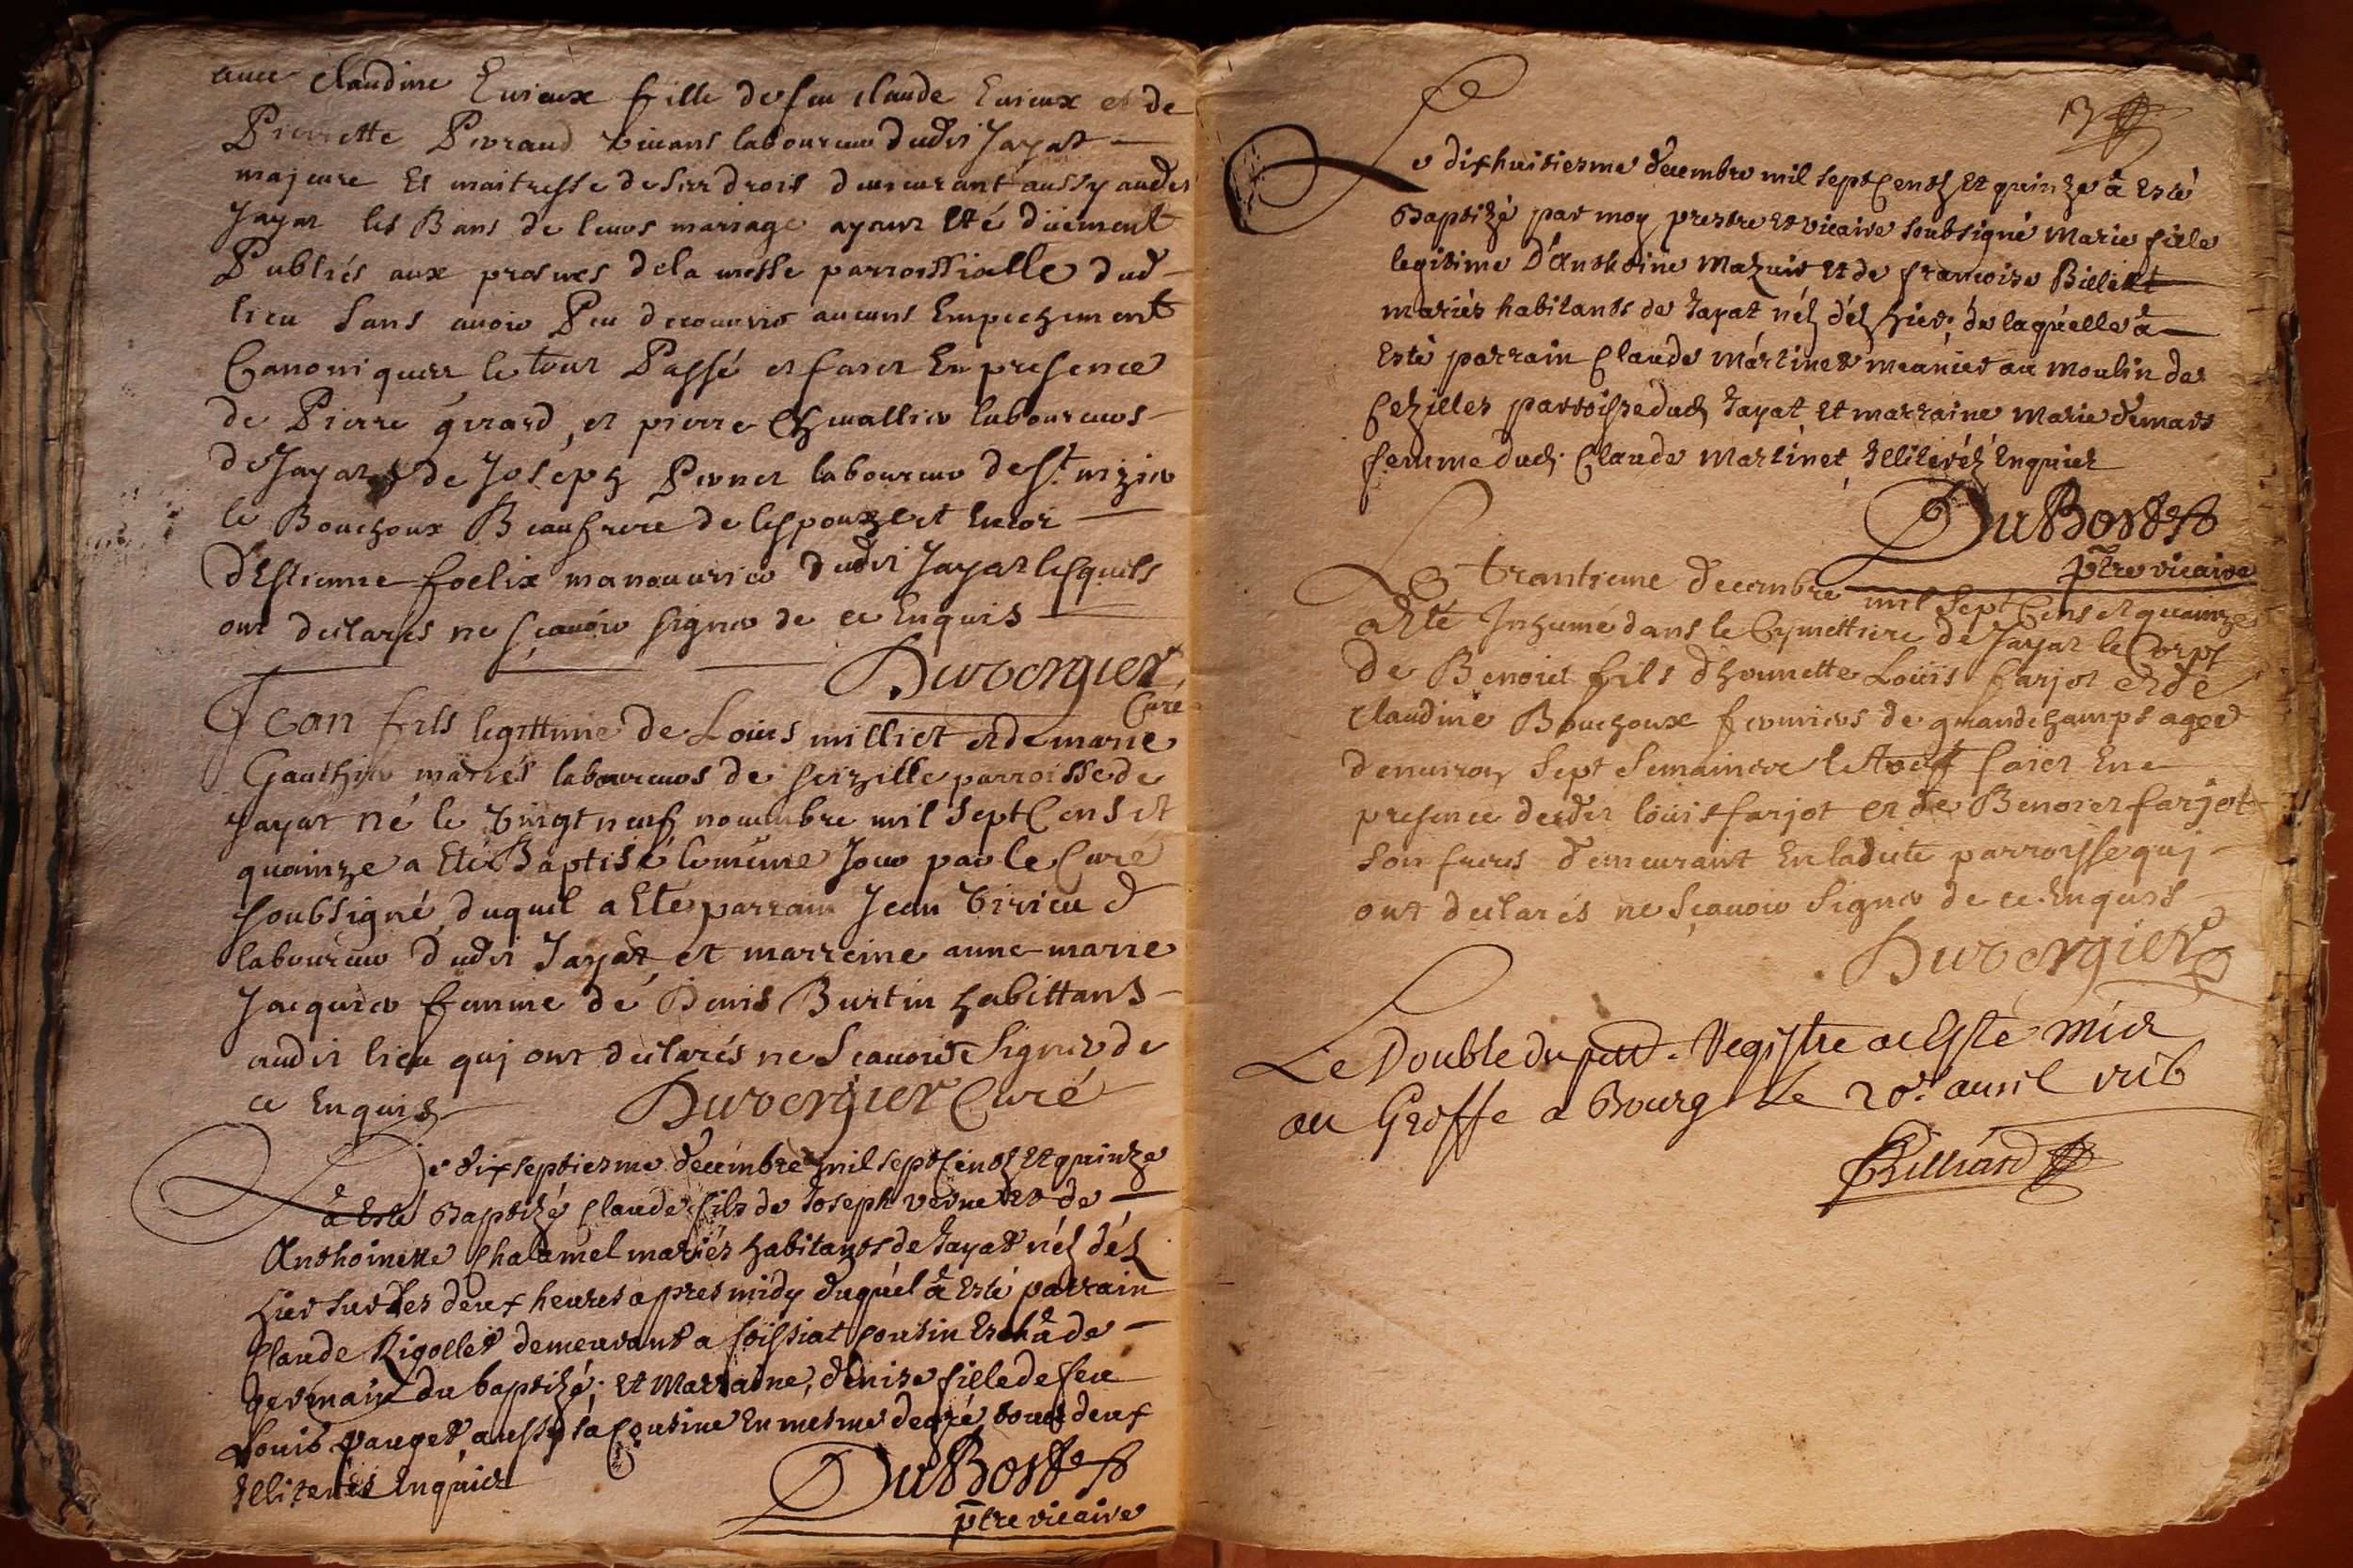 avec Claudine Evieux fille de feu Claude Evieux et de
Pierrette Pevraud vivans laboureur dudit Jayat
majeure et maitresse de ses drois demeurant aussy audit
Jayat les Bans de leurs mariage ayant Eté düement
Publiés aux prosnes de la messe parroissialle dud
lieu sans avoir Peu decouvrir aucuns Empechement
Canoniques le tout Passé et fait En presence
de Pierre girard, et pierre Chevallier laboureurs
de Jayat & de Joseph Pernet laboureur de St nizier
le Bouchoux Beaufrere de lespouze et Encor
d'Estienne foelix manouvrier dudit Jayat lesquels
ont declarés ne sçavoir signer de ce Enquis
Duvergier
Curé
Jean fils legittime de Loüis milliet et de marie
Gauthier mariés laboureurs de seizille parroisse de
Jayat né le vingt neuf novembre mil sept Cens et
quainze a Eté Baptisé le même Jour par le Curé
soubsigné, duquel a Eté parrain Jean virieu
laboureur dudit Jayat et marreine anne marie
Jacquier femme de Denis Burtin habittans
audit lieu quj ont declarés ne sçavoir signer de
ce Enquis Duvergier Curé
Le dixseptiesme decembre mil sept Centz Et quinze
â Esté Baptizé Claude fils de Joseph vernet et de
Anthoinette Chalamel mariés habitants de Jayat néz déz
hier sur les deux heures apres midy duquél â Esté parrain
Claude Rigollet demeurant a foissiat cousin de
germain du baptizé; Et Marraine, denise fille de feu
Louis pauget aussy sa Cousine En mesme degré, tous deux
Illiterés Enquier
DuBost
ptre vicaire
13
Le dixhuitiesme decembre mil sept Centz Et quinze â Esté
Baptizé par moy prestre et vicaire soubsigné Marie fille
legitime D'Anthoine Mazuir Et de francoise Billiet
mariés habitants de Jayat néz déz hier, de laquelle â
Esté parrain Claude Martinet meunier au moulin de
Cezilles parroisse dud. Jayat, Et marraine Marie demars
femme dud. Claude Martinet Illiteréz Enquier
DuBost
ptre vicaire
Le trantieme decembre mil sept Cens et quainze
a Eté Inhumé dans le Cymettiere de Jayat le Corps
de Benoit fils d'honnette Loüis farjot et de
Claudine Bouchoux fermiers de grandchamps agée
d'environ sept semaines le tout fait En
presence dudit loüis farjot et de Benoit farjot
son freres demeurant En ladite parroisse quj
ont declarés ne sçavoir signer de ce Enquis
Duvergier
Le Double du pntt. Registre a Esté mis
au Greffe a Bourg le 20e. avril
Billiard